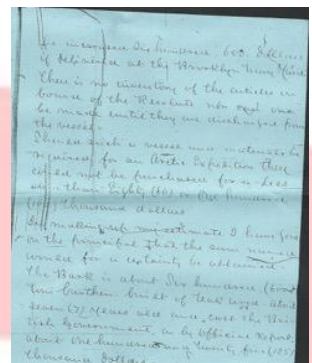 be increased Six hundred. 600. Dollars
if delivered at the Brooklyn Navy Yard
There is no inventory of the articles on
board of the Resolute nor can one
be made until they are discharged from
the vessel.
Should such a vessel and materials be
required for an Arctic Expedition they
could not be purchased for a less
sum than Eighty (80) or One hundred
(100) thousand dollars
In making up my estimate I have gone
on the principal that the sum
would for a certainty be obtained.
The Bark is about Six hundred (600)
tons burthen built of Teak wood about
seven (7) years old and cost the
Government, as by Official Report,
about one hundred and twenty five (125)
thousand Dollars